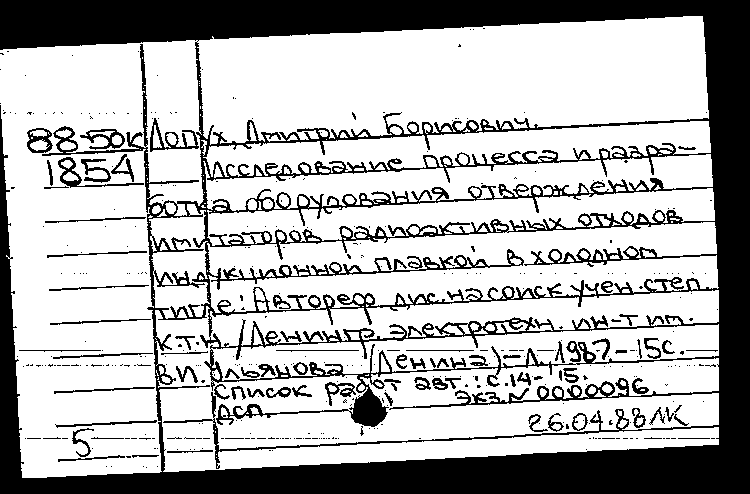 88-50к Лопух, Дмитрий Борисович.
1854 Исследование процесса и разра-
ботка оборудования отверждения
имитаторов радиоактивных отходов
индукционной плавкой в холодном
тигле: Автореф. дис. на соиск. учен. степ.
к.т.н. / Ленингр. электротехн. ин-т им.
В.И. Ульянова (Ленина) - Л., 1987. - 15с.
Список работ авт.: с. 14-15.
ДСП. Экз. N 0000096.
26.04.88 ЛК
5